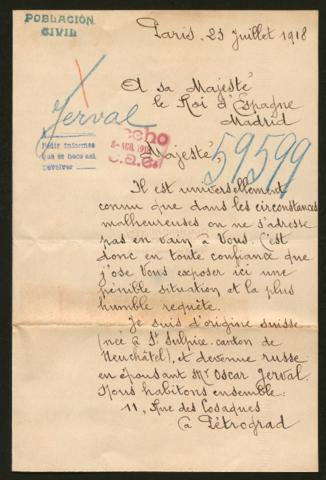 POBLACIÓN
CIVIL
Paris, 23 Juillet 1918
A sa Majesté
le Roi d'Espagne
Madrid
Jerval
59599
Pedir informes
que se hace asi
devolver
Majesté,
Il est universellement
connu que dans les circonstances
malheureuses on ne s'adresse
pas en vain à Vous. C'est
donc en toute confiance que
j'ose Vous exposer ici une
pénible situation et la plus
humble requête.
Je suis d'origine suisse
(née à St Sulpice. canton de
Neuchâtel), et devenue russe
en épousant Mr Oscar Jerval.
Nous habitons ensemble:
11, Rue des Cosaques
à Pétrograd